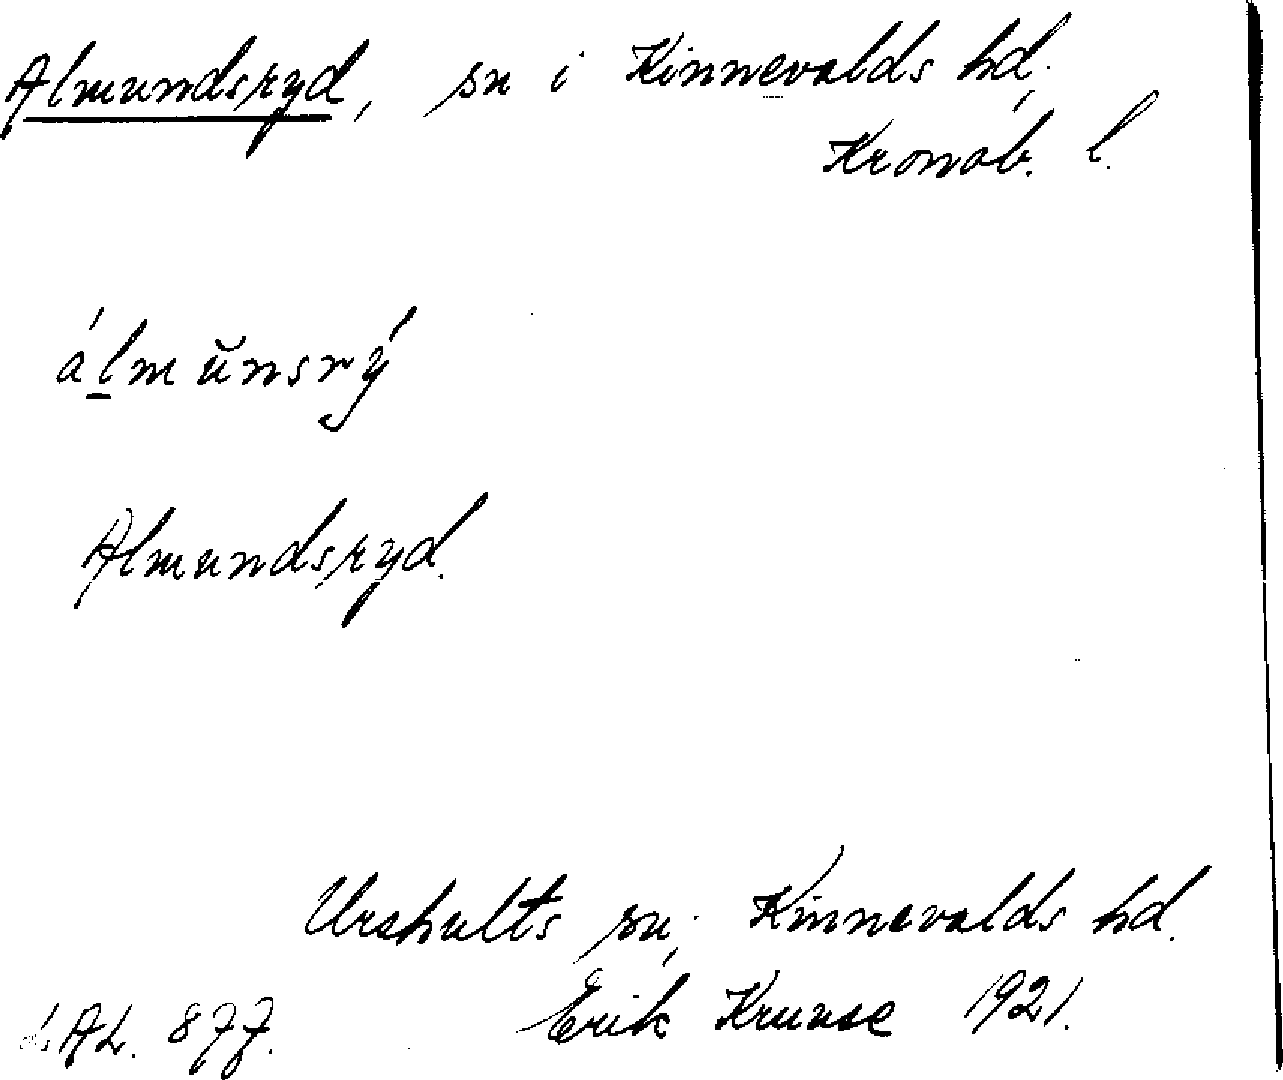 Almundsryd, sn i Kinnevalds hd,
Kronob. l.
álmŭnsrý
Almundsryd.
Urshults sn, Kinnevalds hd.
AL. 877. Erik Kruuse 1921.